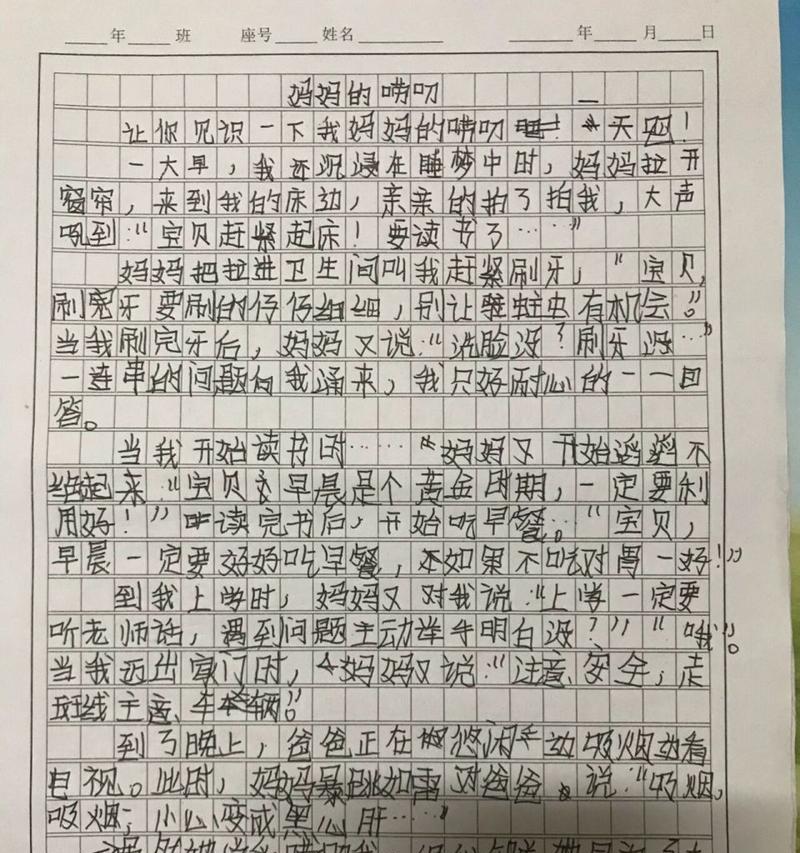 年 班 座号 姓名 年 月 日
妈妈的唠叨
让你见识一下我妈妈的唠叨 天吧！
一大早，我还沉浸在睡梦中时，妈妈拉开
窗帘，来到我的床边，亲亲的拍了拍我，大声
吼到：“宝贝赶紧起床！要读书了……”
妈妈把拉进卫生间叫我赶紧刷牙，“宝贝，
刷完牙要刷的仔仔细细，别让蛀虫有机会。”
当我刷完牙后，妈妈又说：“洗脸没？刷牙没…”
一连串的问题向我涌来，我只好耐心的一一回
答。
当我开始读书时……妈妈又开始滔滔不
起来“宝贝 早晨是个黄金时期，一定要利
用好！”读完书后，开始吃早餐…“宝贝，
早晨一定要好好吃早餐，如果不吃对胃一好！”
到我上学时，妈妈又对我说：“上学一定要
听老师话，遇到问题主动举手明白没？”“哦”。
当我迈出家门时，妈妈又说：“注意安全，走
斑线主意、车辆”。
到了晚上，爸爸正在悠闲 吸烟 看
电视。此时，妈妈暴跳如雷对爸爸说：“吸烟，
吸烟；小心变成黑心肝……